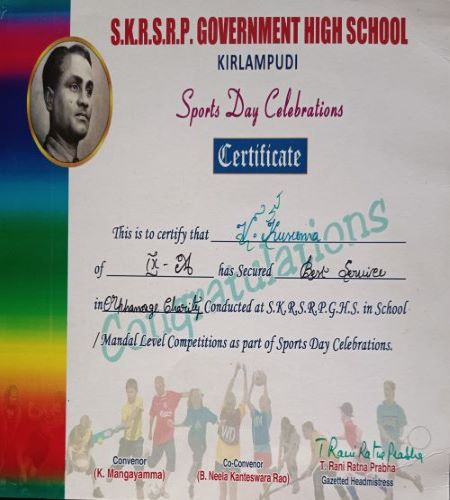 S.K.R.S.R.P. GOVERNMENT HIGH SCHOOL
KIRLAMPUDI
Sports Day Celebrations
Certificate
Congratulations
This is to certify that V. Kusuma
of IX - A has Secured Best Service
in Orphanage Charity Conducted at S.K.R.S.R.P.G.H.S. in School
/ Mandal Level Competitions as part of Sports Day Celebrations.
T Rani Ratna Prabha
Convenor
(K. Mangayamma)
Co-Convenor
(B. Neela Kanteswara Rao)
T. Rani Ratna Prabha
Gazetted Headmistress